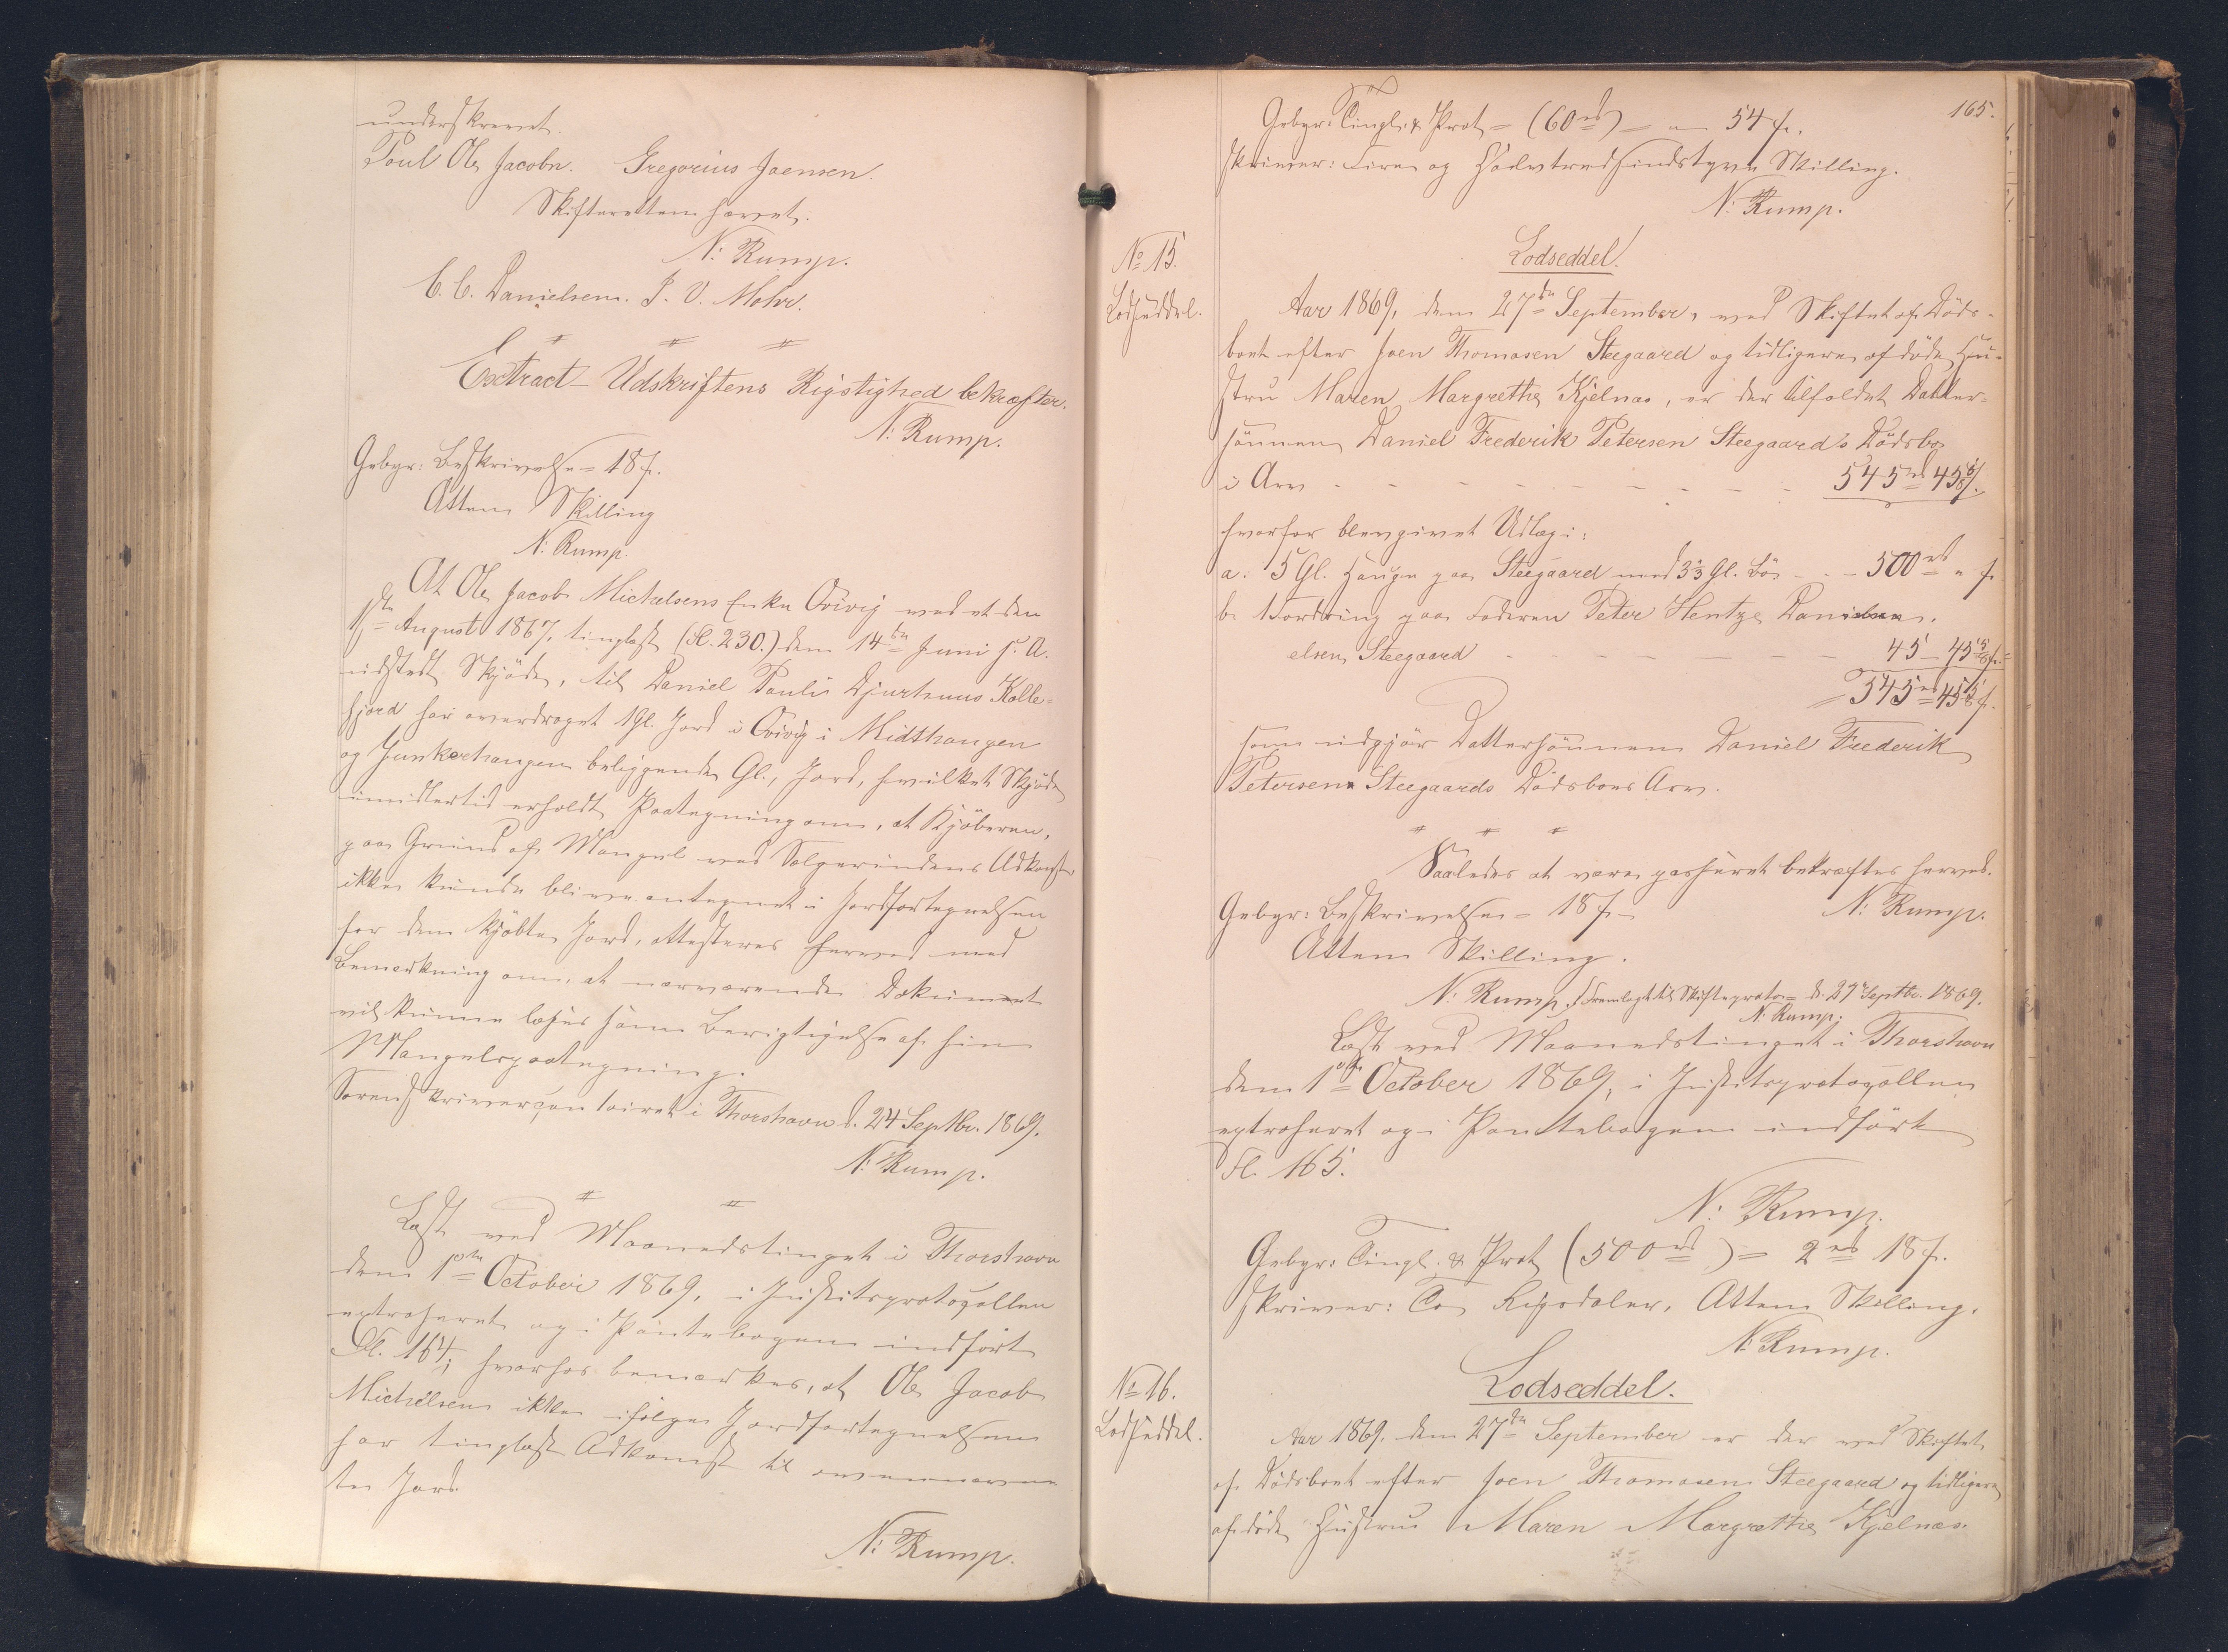 underskrevet.
Poul Ole Jacobn. Gregorius Joensen.
Skifteretten hævet.
N: Rump.
C. C. Danielsen. J. V. Mohr.
Extract-Udskriftens Rigtighed bekræfter.
N: Rump.
Gebyr: Beskrivelse = 18 f.
Atten Skilling
N: Rump.
At Ole Jacob Michelsens Enke Qvivig ved et den
1ste August 1867, tinglæst (Fl. 230.) den 14de Juni s. A.
udstedt Skjøde, til Daniel Pauli Djurhuus Kolle=
fjord har overdraget 1 Gl. Jord i Qvivig i Midthaugen
og Junkerhaugen beliggende Gl., Jord, hvilket Skjøde
imidlertid erholdt Paategning om, at Kjøberen,
paa Grund af Mangel ved Sælgerindens Adkomst
ikke kunde blive antegnet i Jordfortegnelsen
for den kjøbte Jord, attesteres herved med
Bemærkning om, at nærværende Dokument
vil kunne læses som Berigtigelse af hin
Mangelspaategning.
Sorenskrivercontoiret i Thorshavn d. 24 Septbr. 1869.
N: Rump.
Læst ved Maanedstinget i Thorshavn
den 1ste October 1869, i Justitsprotocollen
extraheret og i Pantebogen indført
Fl. 164; hvorhos bemærkes, at Ole Jacob
Michelsen ikke ifølge Jordfortegnelsen
har tinglæst Adkomst til ovennævn
te Jord.
N: Rump.
165.
Gebyr: Tingl. & Prot = (60 rd) = " 54 f.
skriver: Fire og Halvtredsindstyve Skilling.
N: Rump.
No 15.
Lodseddel.
Lodseddel.
Aar 1869, den 27de September, ved Skiftet af Døds-
boet efter Joen Thomasen Steegaard og tidligere afdøde Hu-
stru Maren Margrethe Kjelnæs, er der tilfaldet Datter-
sønnen Daniel Frederik Petersen Steegaard's Dødsbo
i Arv - - - - - - - - 545 rd 45 5/8 f.
hvorfor blev givet Udlæg i:
a. 5 Gl. Hauge paa Steegaard med 3 1/3 Gl. Bø - - 500 rd " f
b. 1 Fordring paa Faderen Peter Hentze Dani
elsen Steegaard - - - - - - 45 - 45 5/8 f.
= 545 rd 45 5/8 f.
som udgjør Dattersønnen Daniel Frederik
Petersen Steegaards Dødsboes Arv.
Saaledes at være passeret bekræftes herved.
Gebyr: Beskrivelse = 18 f. N: Rump.
Atten Skilling.
N: Rump. / Fremlagt til Skifteproto= d. 27 Septbr. 1869.
N: Rump.
Læst ved Maanedstinget i Thorshavn
den 1ste October 1869, i Justitsprotocollen
extraheret og i Pantebogen indført
Fl. 165.
N: Rump.
Gebyr: Tingl. & Prot (500 rd) = 2 rd 18 f.
skriver: To Rigsdaler, Atten Skilling.
N: Rump.
No 16.
Lodseddel.
Lodseddel.
Aar 1869, den 27de September er der ved Skiftet
af Dødsboet efter Joen Thomasen Steegaard og tidligere
afdøde Hustru Maren Margrethe Kjelnæs.